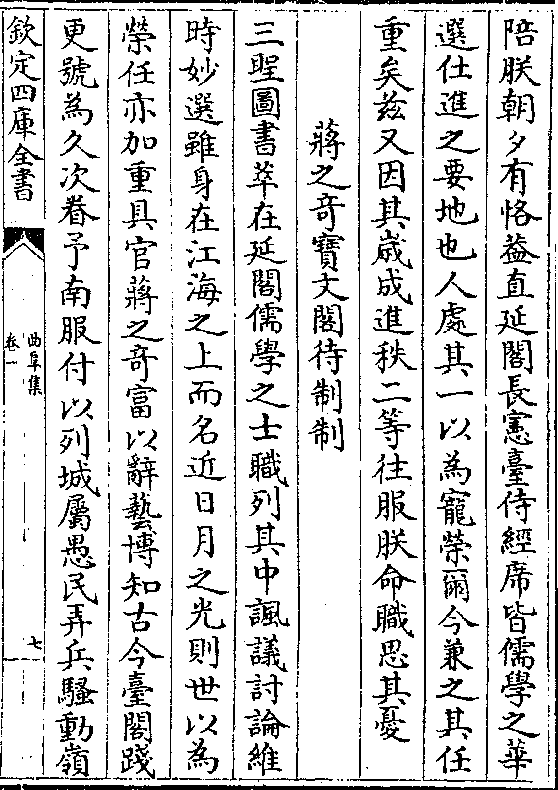 陪朕朝夕有恪益直延閣長憲臺侍經席皆儒學之華
選仕進之要地也人處其一以為寵榮爾今兼之其任
重矣兹又因其歲成進秩二等往服朕命職思其憂
蔣之奇寶文閣待制制
三聖圖書萃在延閣儒學之士職列其中諷議討論維
時妙選雖身在江海之上而名近日月之光則世以為
榮任亦加重具官蔣之奇富以辭藝博知古今臺閣踐
更號為久次眷予南服付以列城屬愚民弄兵騷動嶺
欽定四庫全書
曲阜集
卷一
七